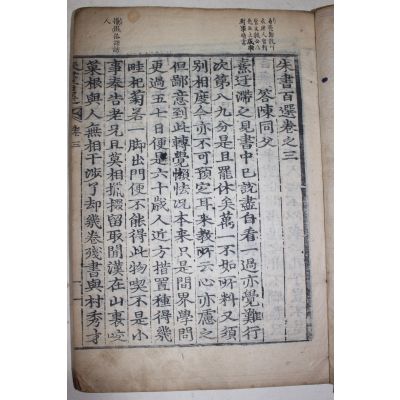 朱書百選卷之三
答陳同父
熹迂滯之見書中已說盡自看一過亦覺難行
次第八九分是且罷休矣萬一不如所料又須
別相度今亦不可預定耳來教所云心亦慮之
但鄙意到此轉覺懶怯况本來只是間界學問
更過五七日便是六十歲人近方措置種得幾
畦杞菊若一脚出門便不能得此物喫不是小
事奉告老兄且莫相攛掇留取閒漢在山裏咬
菜根與人無相干涉了却幾卷殘書與村秀才